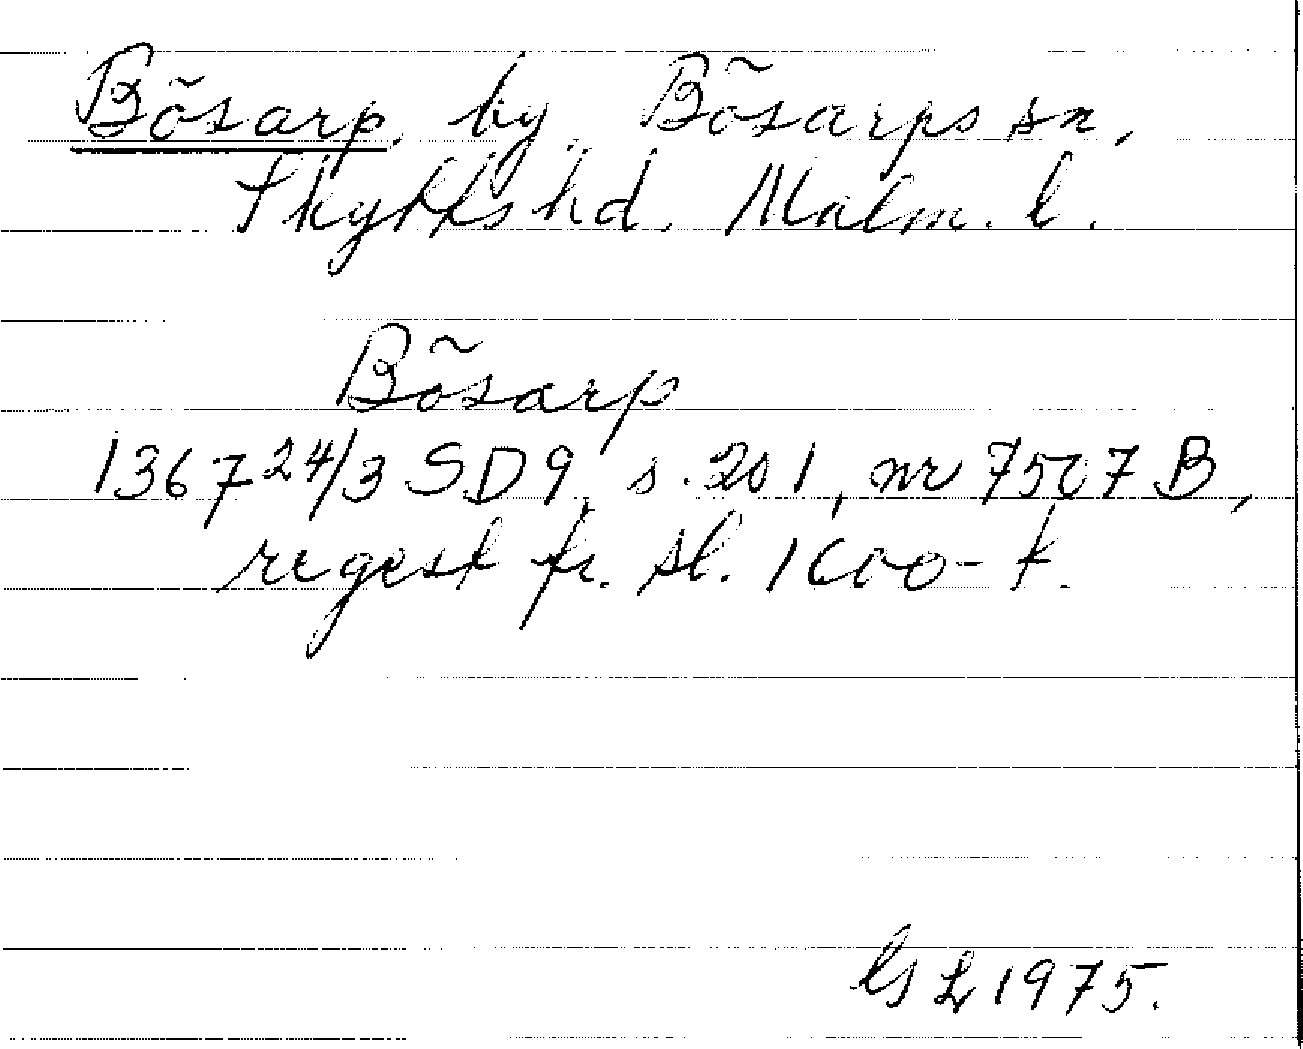 Bösarp, by, Bösarps sn,
Skytts hd. Malm. l.
Bösarp
1367 24/3 SD9, s. 201, nr 7507 B,
regest fr. sl. 1600-t.
1975.